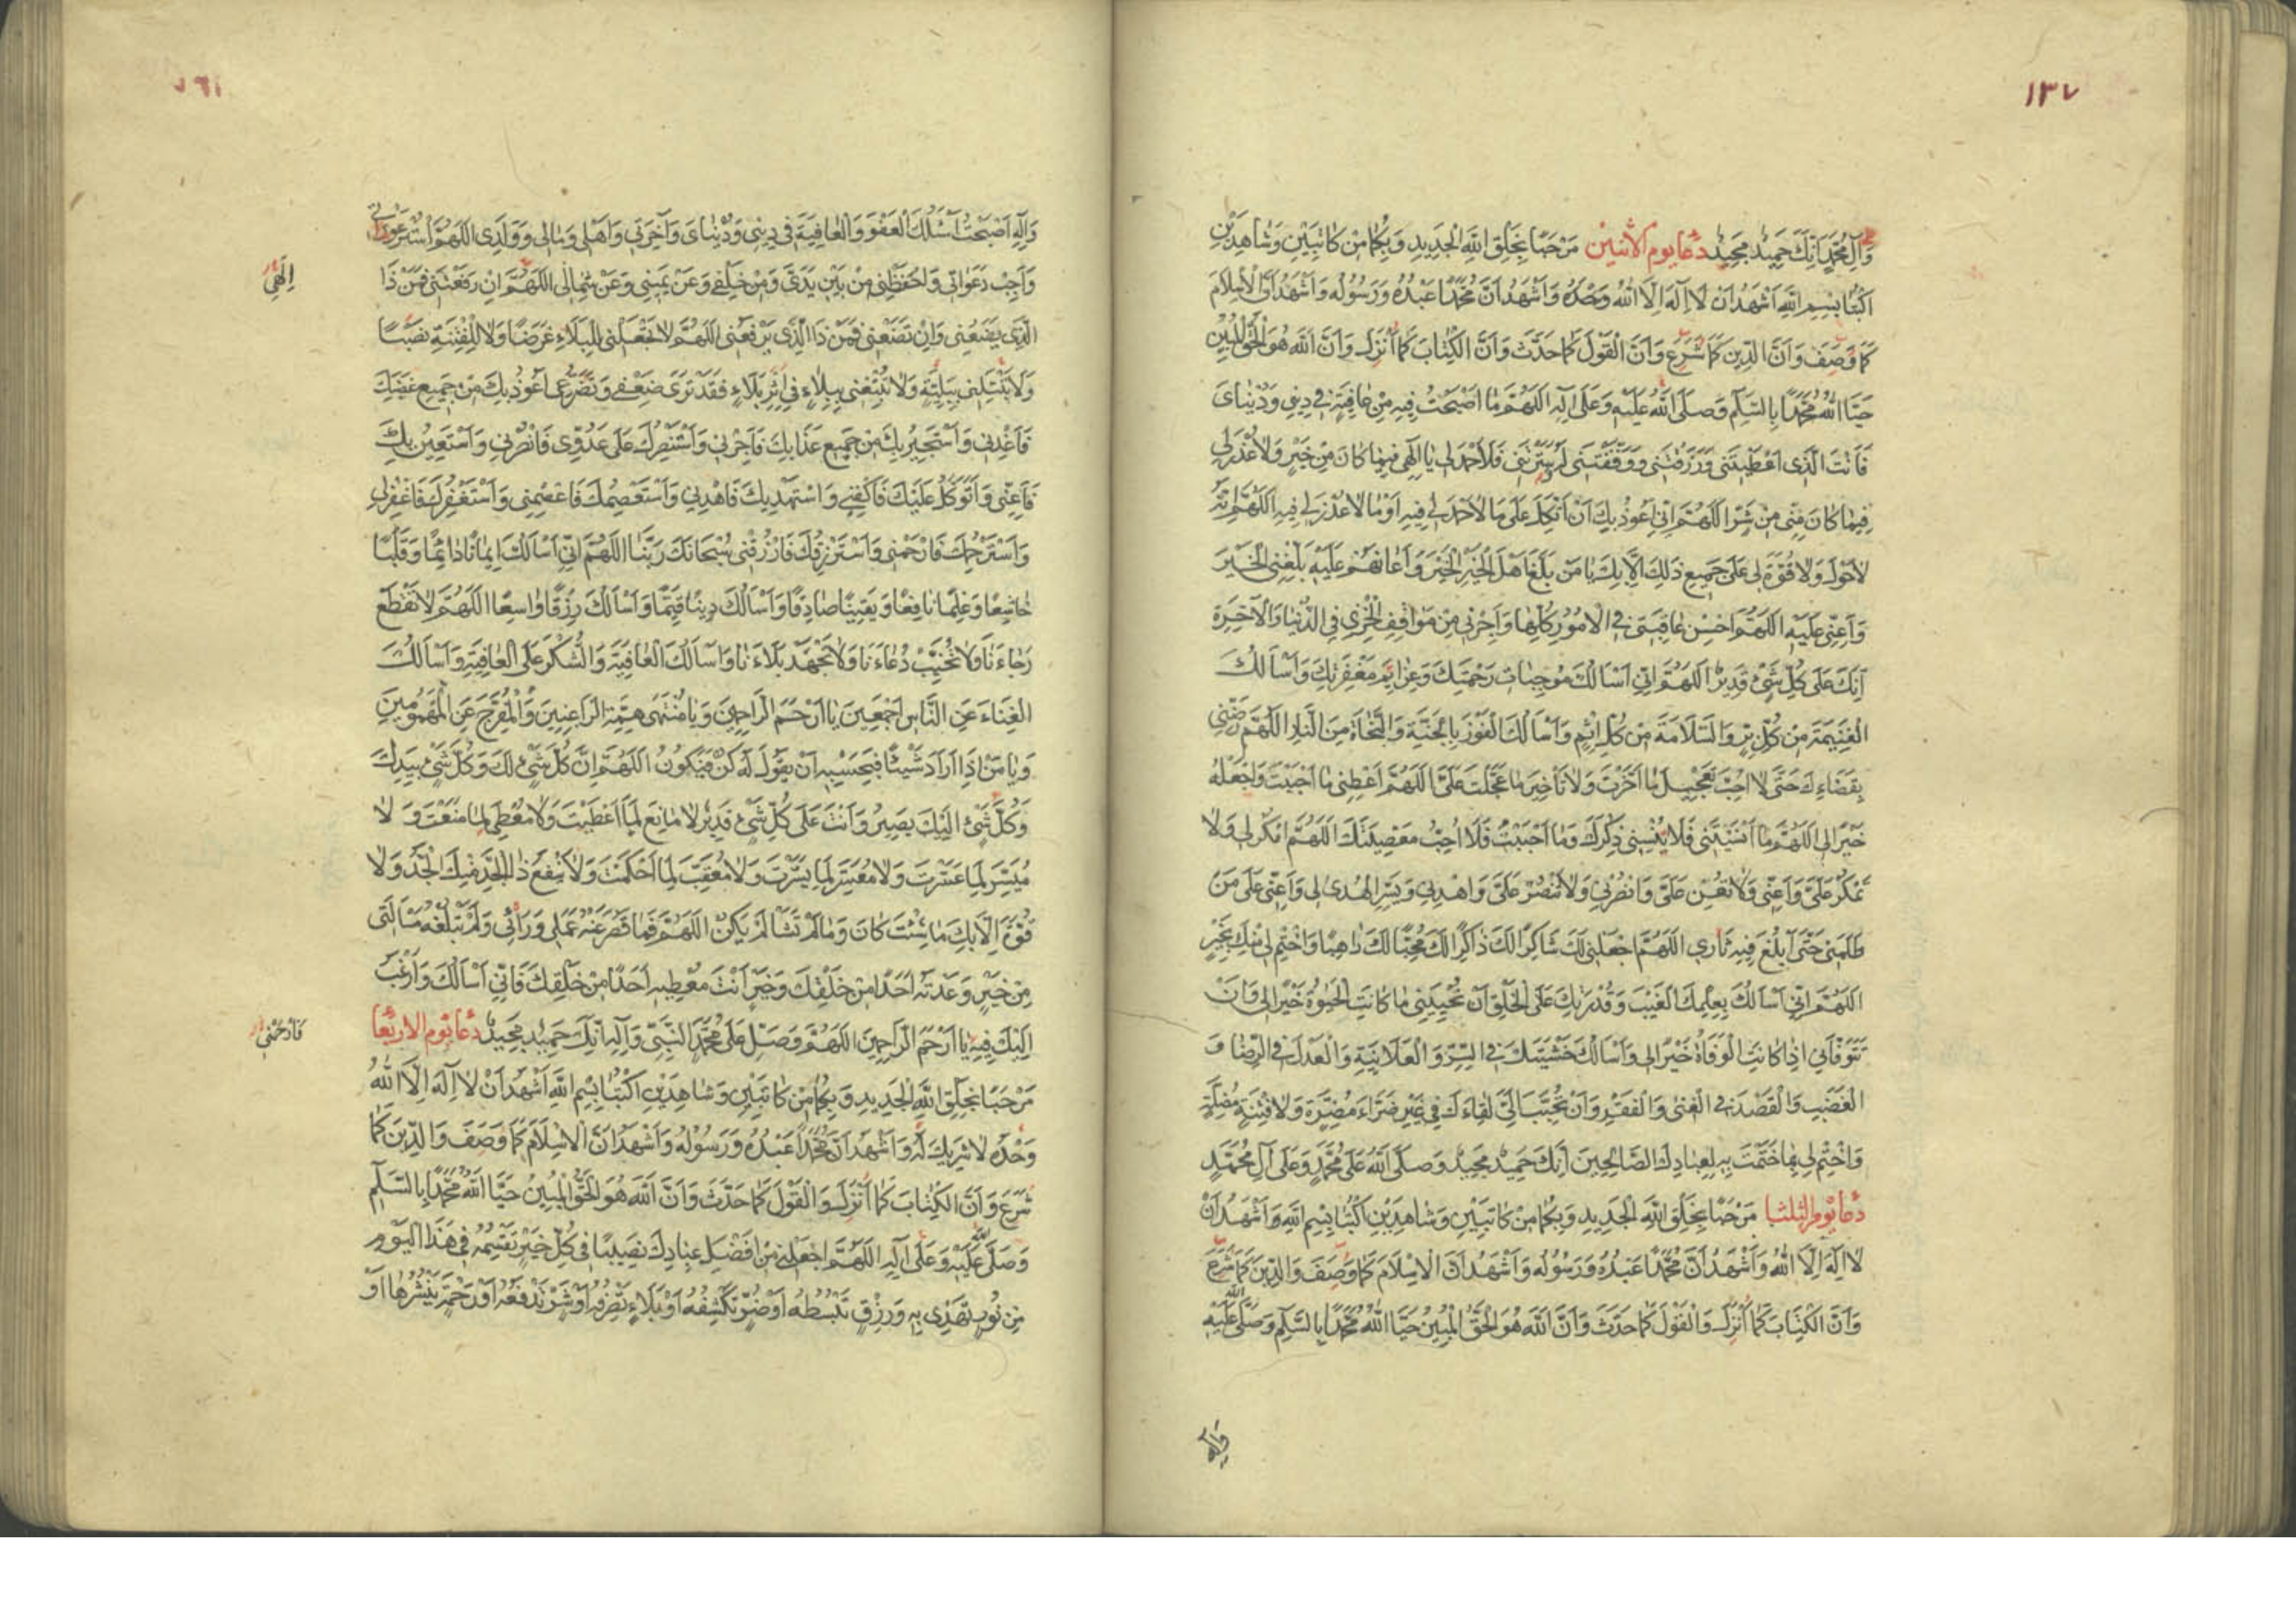 ١٣٧
وَآلِ مُحَمَّدٍ اِنَّكَ حَمِيدٌ مَجِيدٌ دعا يوم الاثنين مَرْحَبًا بِخَلْقِ اللهِ الْجَدِيدِ وَبِكُمَا مِنْ كَاتِبَيْنِ وَشَاهِدَيْنِ
اكْتُبَا بِسْمِ اللهِ اَشْهَدُ اَنْ لَا اِلٰهَ اِلَّا اللهُ وَحْدَهُ وَاَشْهَدُ اَنَّ مُحَمَّدًا عَبْدُهُ وَرَسُولُهُ وَاَشْهَدُ اَنَّ الْاِسْلَامَ
كَمَا وَصَفَ وَاَنَّ الدِّينَ كَمَا شَرَعَ وَاَنَّ الْقَوْلَ كَمَا حَدَّثَ وَاَنَّ الْكِتَابَ كَمَا اَنْزَلَ وَاَنَّ اللهَ هُوَ الْحَقُّ الْمُبِينُ
حَيَّا اللهُ مُحَمَّدًا بِالسَّلَامِ وَصَلَّى اللهُ عَلَيْهِ وَعَلَى آلِهِ اللّٰهُمَّ مَا اَصْبَحْتُ فِيهِ مِنْ عَافِيَةٍ فِي دِينِي وَدُنْيَايَ
فَاَنْتَ الَّذِي اَعْطَيْتَنِي وَرَزَقْتَنِي وَوَفَّقْتَنِي لَهُ وَسَتَرْتَنِي فَلَا حَمْدَ لِي يَا اِلٰهِي فِيمَا كَانَ مِنْ خَيْرٍ وَلَا عُذْرَ لِي
فِيمَا كَانَ مِنِّي مِنْ شَرٍّ اللّٰهُمَّ اِنِّي اَعُوذُ بِكَ اَنْ اَتَّكِلَ عَلَى مَا لَا حَمْدَ لِي فِيهِ اَوْ مَا لَا عُذْرَ لِي فِيهِ اللّٰهُمَّ اِنَّهُ
لَا حَوْلَ وَلَا قُوَّةَ لِي عَلَى جَمِيعِ ذٰلِكَ اِلَّا بِكَ يَا مَنْ بَلَّغَ اَهْلَ الْخَيْرِ الْخَيْرَ وَاَعَانَهُمْ عَلَيْهِ بَلِّغْنِي الْخَيْرَ
وَاَعِنِّي عَلَيْهِ اللّٰهُمَّ اَحْسِنْ عَاقِبَتِي فِي الْاُمُورِ كُلِّهَا وَاَجِرْنِي مِنْ مَوَاقِفِ الْخِزْيِ فِي الدُّنْيَا وَالْآخِرَةِ
اِنَّكَ عَلَى كُلِّ شَيْءٍ قَدِيرٌ اللّٰهُمَّ اِنِّي اَسْاَلُكَ مُوجِبَاتِ رَحْمَتِكَ وَعَزَائِمَ مَغْفِرَتِكَ وَاَسْاَلُكَ
الْغَنِيمَةَ مِنْ كُلِّ بِرٍّ وَالسَّلَامَةَ مِنْ كُلِّ اِثْمٍ وَاَسْاَلُكَ الْفَوْزَ بِالْجَنَّةِ وَالنَّجَاةَ مِنَ النَّارِ اللّٰهُمَّ رَضِّنِي
بِقَضَاءِكَ حَتَّى لَا اُحِبَّ تَعْجِيلَ مَا اَخَّرْتَ وَلَا تَأْخِيرَ مَا عَجَّلْتَ عَلَيَّ اللّٰهُمَّ اَعْطِنِي مَا اَحْبَبْتَ وَاجْعَلْهُ
خَيْرًا لِي اللّٰهُمَّ مَا اَنْسَيْتَنِي فَلَا تُنْسِنِي ذِكْرَكَ وَمَا اَحْبَبْتُ فَلَا اُحِبُّ مَعْصِيَتَكَ اللّٰهُمَّ امْكُرْ لِي وَلَا
تَمْكُرْ عَلَيَّ وَاَعِنِّي وَلَا تُعِنْ عَلَيَّ وَانْصُرْنِي وَلَا تَنْصُرْ عَلَيَّ وَاهْدِنِي وَيَسِّرِ الْهُدَى لِي وَاَعِنِّي عَلَى مَنْ
ظَلَمَنِي حَتَّى اَبْلُغَ فِيهِ ثَارِي اللّٰهُمَّ اجْعَلْنِي لَكَ شَاكِرًا لَكَ ذَاكِرًا لَكَ مُحِبًّا لَكَ رَاهِبًا وَاخْتِمْ لِي مِنْكَ بِخَيْرٍ
اللّٰهُمَّ اِنِّي اَسْاَلُكَ بِعِلْمِكَ الْغَيْبَ وَقُدْرَتِكَ عَلَى الْخَلْقِ اَنْ تُحْيِيَنِي مَا كَانَتِ الْحَيٰوةُ خَيْرًا لِي وَاَنْ
تَتَوَفَّانِي اِذَا كَانَتِ الْوَفَاةُ خَيْرًا لِي وَاَسْاَلُكَ خَشْيَتَكَ فِي السِّرِّ وَالْعَلَانِيَةِ وَالْعَدْلَ فِي الرِّضَا وَ
الْغَضَبِ وَالْقَصْدَ فِي الْغِنَى وَالْفَقْرِ وَاَنْ تُحَبِّبَ اِلَيَّ لِقَاءَكَ فِي غَيْرِ ضَرَّاءَ مُضِرَّةٍ وَلَا فِتْنَةٍ مُضِلَّةٍ
وَاخْتِمْ لِي بِمَا خَتَمْتَ بِهِ لِعِبَادِكَ الصَّالِحِينَ اِنَّكَ حَمِيدٌ مَجِيدٌ وَصَلَّى اللهُ عَلَى مُحَمَّدٍ وَعَلَى آلِ مُحَمَّدٍ
دعا يوم الثلثا مَرْحَبًا بِخَلْقِ اللهِ الْجَدِيدِ وَبِكُمَا مِنْ كَاتِبَيْنِ وَشَاهِدَيْنِ اكْتُبَا بِسْمِ اللهِ وَاَشْهَدُ اَنْ
لَا اِلٰهَ اِلَّا اللهُ وَاَشْهَدُ اَنَّ مُحَمَّدًا عَبْدُهُ وَرَسُولُهُ وَاَشْهَدُ اَنَّ الْاِسْلَامَ كَمَا وَصَفَ وَالدِّينَ كَمَا شَرَعَ
وَاَنَّ الْكِتَابَ كَمَا اَنْزَلَ وَالْقَوْلَ كَمَا حَدَّثَ وَاَنَّ اللهَ هُوَ الْحَقُّ الْمُبِينُ حَيَّا اللهُ مُحَمَّدًا بِالسَّلَامِ وَصَلَّى اللهُ عَلَيْهِ
وَآلِهِ
وَآلِهِ اَصْبَحْتُ اَسْئَلُكَ الْعَفْوَ وَالْعَافِيَةَ فِي دِينِي وَدُنْيَايَ وَآخِرَتِي وَاَهْلِي وَمَالِي وَوَلَدِي اللّٰهُمَّ اسْتُرْ عَوْرَاتِي
وَاَجِبْ دَعَوَاتِي وَاحْفَظْنِي مِنْ بَيْنِ يَدَيَّ وَمِنْ خَلْفِي وَعَنْ يَمِينِي وَعَنْ شِمَالِي اللّٰهُمَّ اِنْ رَفَعْتَنِي فَمَنْ ذَا
اِلٰهِي
الَّذِي يَضَعُنِي وَاِنْ تَضَعْنِي فَمَنْ ذَا الَّذِي يَرْفَعُنِي اللّٰهُمَّ لَا تَجْعَلْنِي لِلْبَلَاءِ غَرَضًا وَلَا لِلْفِتْنَةِ نَصَبًا
وَلَا تَبْتَلِنِي بِبَلِيَّةٍ وَلَا تُتْبِعْنِي بِبَلَاءٍ فِي اِثْرِ بَلَاءٍ فَقَدْ تَرَى ضَعْفِي وَتَضَرُّعِي اَعُوذُ بِكَ مِنْ جَمِيعِ غَضَبِكَ
فَاَعِذْنِي وَاَسْتَجِيرُ بِكَ مِنْ جَمِيعِ عَذَابِكَ فَاَجِرْنِي وَاَسْتَنْصِرُكَ عَلَى عَدُوِّي فَانْصُرْنِي وَاَسْتَعِينُ بِكَ
فَاَعِنِّي وَاَتَوَكَّلُ عَلَيْكَ فَاكْفِنِي وَاسْتَهْدِيكَ فَاهْدِنِي وَاَسْتَعْصِمُكَ فَاعْصِمْنِي وَاَسْتَغْفِرُكَ فَاغْفِرْ لِي
وَاَسْتَرْحِمُكَ فَارْحَمْنِي وَاَسْتَرْزِقُكَ فَارْزُقْنِي سُبْحَانَكَ رَبَّنَا اللّٰهُمَّ اِنِّي اَسْاَلُكَ اِيمَانًا دَائِمًا وَقَلْبًا
خَاشِعًا وَعِلْمًا نَافِعًا وَيَقِينًا صَادِقًا وَاَسْاَلُكَ دِينًا قَيِّمًا وَاَسْاَلُكَ رِزْقًا وَاسِعًا اللّٰهُمَّ لَا تَقْطَعْ
رَجَاءَنَا وَلَا تُخَيِّبْ دُعَاءَنَا وَلَا تَجْهَدْ بَلَاءَنَا وَاَسْاَلُكَ الْعَافِيَةَ وَالشُّكْرَ عَلَى الْعَافِيَةِ وَاَسْاَلُكَ
الْغِنَاءَ عَنِ النَّاسِ اَجْمَعِينَ يَا اَرْحَمَ الرَّاحِمِينَ وَيَا مُنْتَهَى هِمَّةِ الرَّاغِبِينَ وَالْمُفَرِّجَ عَنِ الْمَهْمُومِينَ
وَيَا مَنْ اِذَا اَرَادَ شَيْئًا فَبِحَسْبِهِ اَنْ يَقُولَ لَهُ كُنْ فَيَكُونُ اللّٰهُمَّ اِنَّ كُلَّ شَيْءٍ لَكَ وَكُلَّ شَيْءٍ بِيَدِكَ
وَكُلُّ شَيْءٍ اِلَيْكَ يَصِيرُ وَاَنْتَ عَلَى كُلِّ شَيْءٍ قَدِيرٌ لَا مَانِعَ لِمَا اَعْطَيْتَ وَلَا مُعْطِيَ لِمَا مَنَعْتَ وَ لَا
مُيَسِّرَ لِمَا عَسَّرْتَ وَلَا مُعَسِّرَ لِمَا يَسَّرْتَ وَلَا مُعَقِّبَ لِمَا اَحْكَمْتَ وَلَا يَنْفَعُ ذَا الْجَدِّ مِنْكَ الْجَدُّ وَلَا
قُوَّةَ اِلَّا بِكَ مَا شِئْتَ كَانَ وَمَا لَمْ تَشَأْ لَمْ يَكُنْ اللّٰهُمَّ فَمَا قَصُرَ عَنْهُ عَمَلِي وَرَأْيِي وَلَمْ تَبْلُغْهُ مَسْاَلَتِي
مِنْ خَيْرٍ وَعَدْتَهُ اَحَدًا مِنْ خَلْقِكَ وَخَيْرٍ اَنْتَ مُعْطِيهِ اَحَدًا مِنْ خَلْقِكَ فَاِنِّي اَسْاَلُكَ وَاَرْغَبُ
اِلَيْكَ فِيهِ يَا اَرْحَمَ الرَّاحِمِينَ اللّٰهُمَّ وَصَلِّ عَلَى مُحَمَّدٍ النَّبِيِّ وَآلِهِ اِنَّكَ حَمِيدٌ مَجِيدٌ دعا يوم الاربعا
مَرْحَبًا بِخَلْقِ اللهِ الْجَدِيدِ وَبِكُمَا مِنْ كَاتِبَيْنِ وَشَاهِدَيْنِ اكْتُبَا بِسْمِ اللهِ اَشْهَدُ اَنْ لَا اِلٰهَ اِلَّا اللهُ
وَحْدَهُ لَا شَرِيكَ لَهُ وَاَشْهَدُ اَنَّ مُحَمَّدًا عَبْدُهُ وَرَسُولُهُ وَاَشْهَدُ اَنَّ الْاِسْلَامَ كَمَا وَصَفَ وَالدِّينَ كَمَا
شَرَعَ وَاَنَّ الْكِتَابَ كَمَا اَنْزَلَ وَالْقَوْلَ كَمَا حَدَّثَ وَاَنَّ اللهَ هُوَ الْحَقُّ الْمُبِينُ حَيَّا اللهُ مُحَمَّدًا بِالسَّلَامِ
وَصَلَّى اللهُ عَلَيْهِ وَعَلَى آلِهِ اللّٰهُمَّ اجْعَلْنِي مِنْ اَفْضَلِ عِبَادِكَ نَصِيبًا فِي كُلِّ خَيْرٍ تَقْسِمُهُ فِي هَذَا الْيَوْمِ
مِنْ نُورٍ تَهْدِي بِهِ وَرِزْقٍ تَبْسُطُهُ اَوْ ضُرٍّ تَكْشِفُهُ اَوْ بَلَاءٍ تَصْرِفُهُ اَوْ شَرٍّ تَدْفَعُهُ اَوْ رَحْمَةٍ تَنْشُرُهَا اَوْ